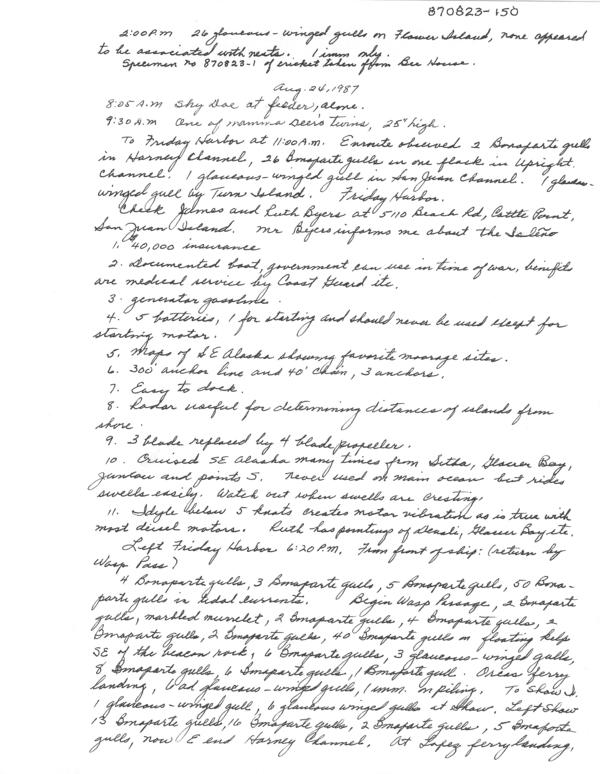 870823-150
2:00 P.M 26 glaucous-winged gulls on Flower Island, none appeared
to be associated with nests. 1 imm only.
Specimen no 870823-1 of cricket taken from Bee House.
Aug. 24, 1987
8:05 A.M Sky Doe at feeder, alone.
9:30 A.M One of mamma Deer's twins, 25" high.
To Friday Harbor at 11:00 A.M. Enroute observed 2 Bonaparte gulls
in Harney Channel, 26 Bonaparte gulls in one flock in Upright
Channel. 1 glaucous-winged gull in San Juan Channel. 1 glaucous-
winged gull by Turn Island. Friday Harbor.
Check James and Ruth Byers at 5110 Beach Rd, Cattle Point,
San Juan Island. Mr Byers informs me about the Isleño
1. $40,000 insurance
2. Documented boat, government can use in time of war, benefits
are medical service by Coast Guard etc.
3. generator gasoline.
4. 5 batteries, 1 for starting and should never be used except for
starting motor.
5. Maps of SE Alaska showing favorite moorage sites.
6. 300' anchor line and 40' chain, 3 anchors.
7. Easy to dock.
8. Radar useful for determining distances of islands from
shore.
9. 3 blade replaced by 4 blade propeller.
10. Cruised SE Alaska many times from Sitka, Glacier Bay,
Juneau and points S. Never used on main ocean but rides
swells easily. Watch out when swells are cresting.
11. Idyle below 5 knots creates motor vibration as is true with
most diesel motors. Ruth has paintings of Denali, Glacier Bay etc.
Left Friday Harbor 6:20 P.M. From front of ship: (return by
Wasp Pass)
4 Bonaparte gulls, 3 Bonaparte gulls, 5 Bonaparte gulls, 50 Bona-
parte gulls in tidal currents. Begin Wasp Passage, 2 Bonaparte
gulls, marbled murrelet, 2 Bonaparte gulls, 4 Bonaparte gulls, 2
Bonaparte gulls, 2 Bonaparte gulls, 40 Bonaparte gulls on floating kelp
SE of the beacon rock, 6 Bonaparte gulls, 3 glaucous-winged gulls,
8 Bonaparte gulls, 6 Bonaparte gulls, 1 Bonaparte gull. Orcas ferry
landing, 6 ad glaucous-winged gulls, 1 imm. on piling. To Shaw I.
1 glaucous-winged gull, 6 glaucous winged gulls at Shaw. Left Shaw
13 Bonaparte gulls, 16 Bonaparte gulls, 2 Bonaparte gulls, 5 Bonaparte
gulls, now E end Harney Channel. At Lopez ferry landing,